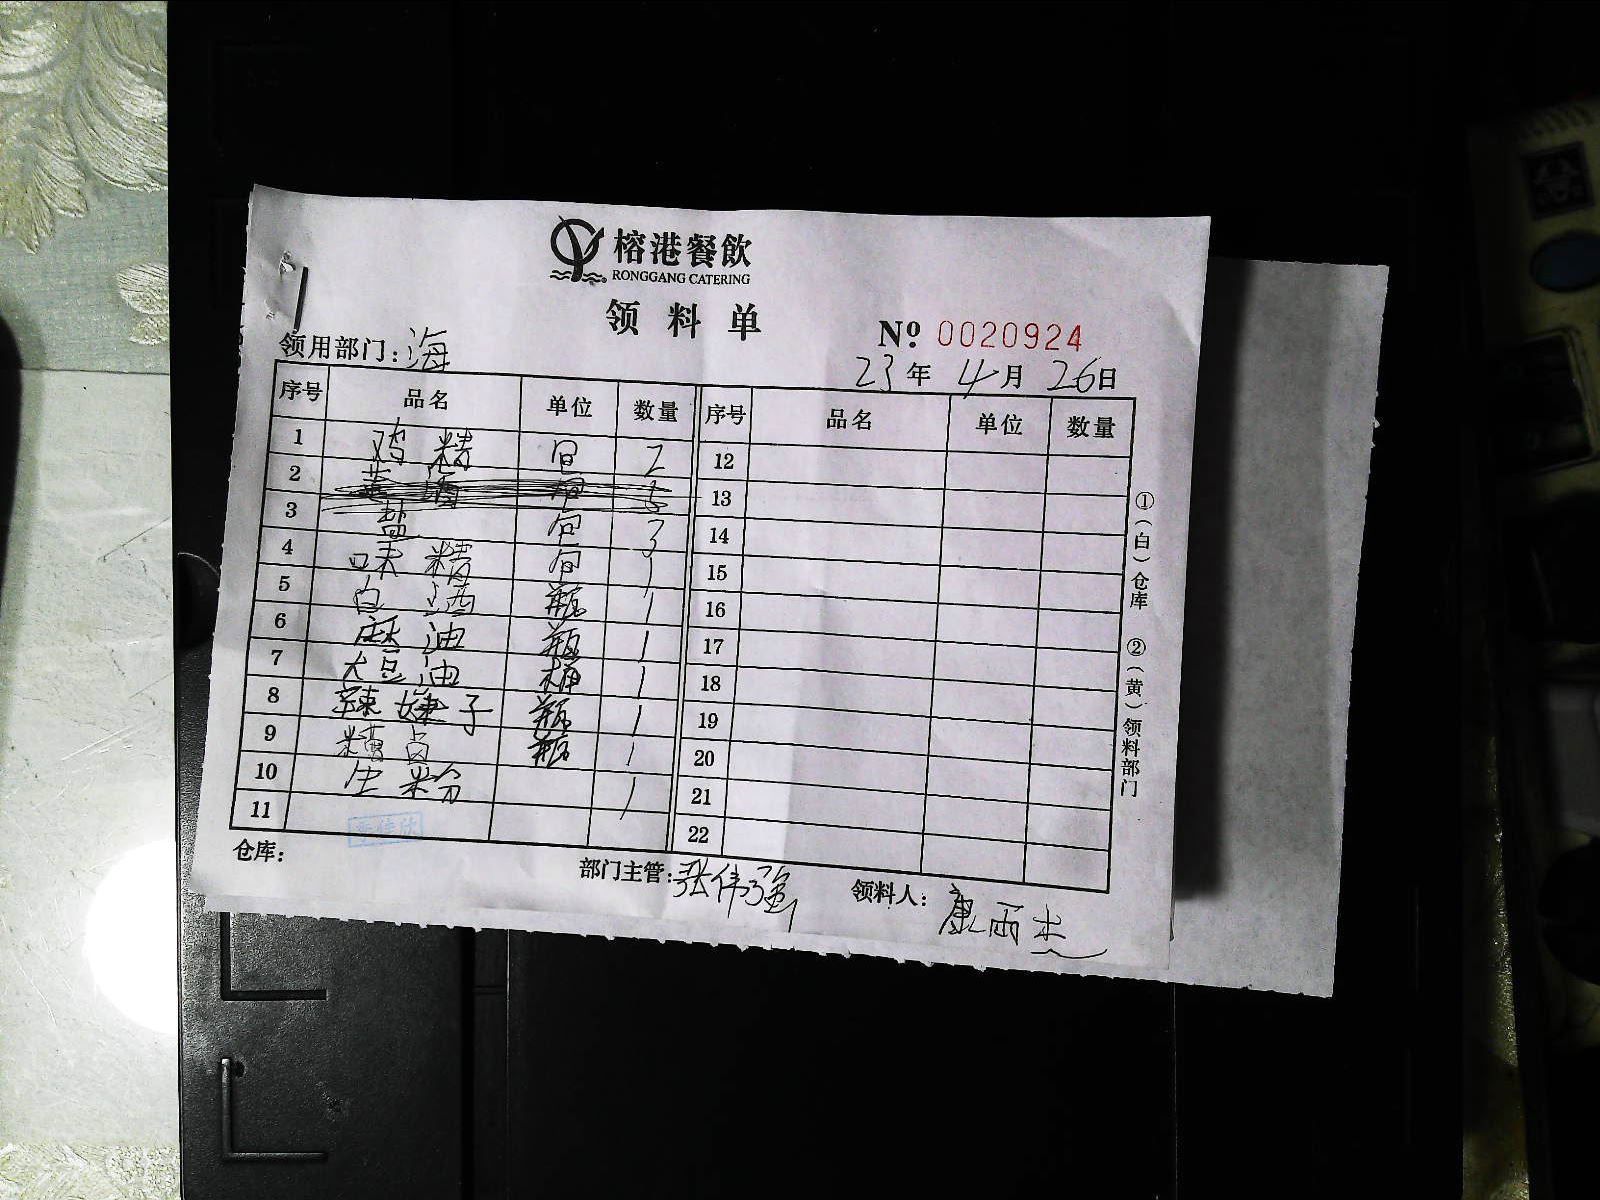 榕港餐飲
RONGGANG CATERING
领料单
№ 0020924
领用部门：海
23年 4月 26日
序号 品名 单位 数量 序号 品名 单位 数量
1 鸡精 包 2 12
2 13
3 盐 包 3 14
4 味精 包 1 15
5 白酒 瓶 1 16
6 麻油 瓶 1 17
7 大豆油 桶 1 18
8 辣嫌子 瓶 1 19
9 糟卤 瓶 1 20
10 生粉 1 21
11 22
①（白）仓库 ②（黄）领料部门
仓库： 部门主管：张伟强 领料人：康雨杰